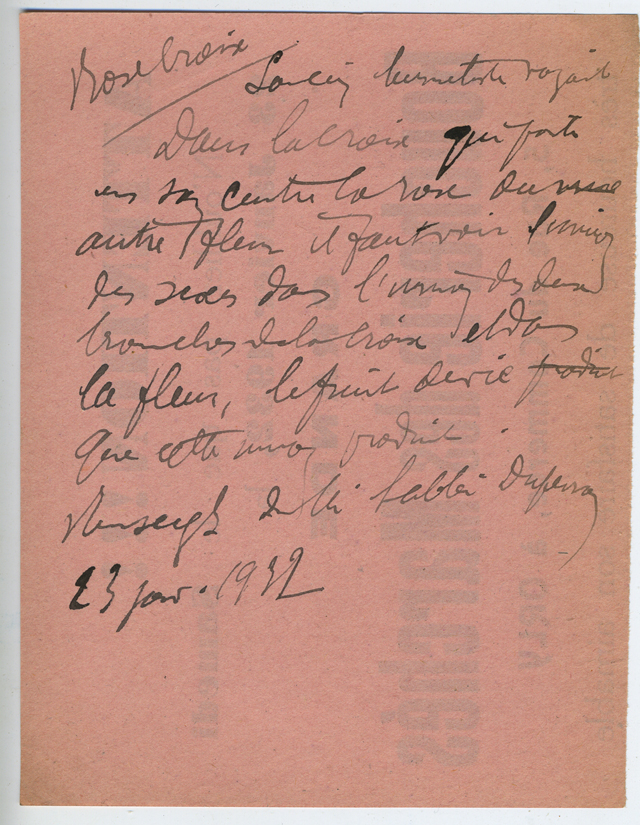 Rose Croix
hermétiste voyait
Dans la croix qui porte
en son centre la rose ou une
autre fleur il faut voir l'union
des sexes dans l'union des deux
branches de la croix et dans
la fleur, le fruit de vie produit
que cette union produit.
Renseigt de Mr l'abbé
23 janv. 1932